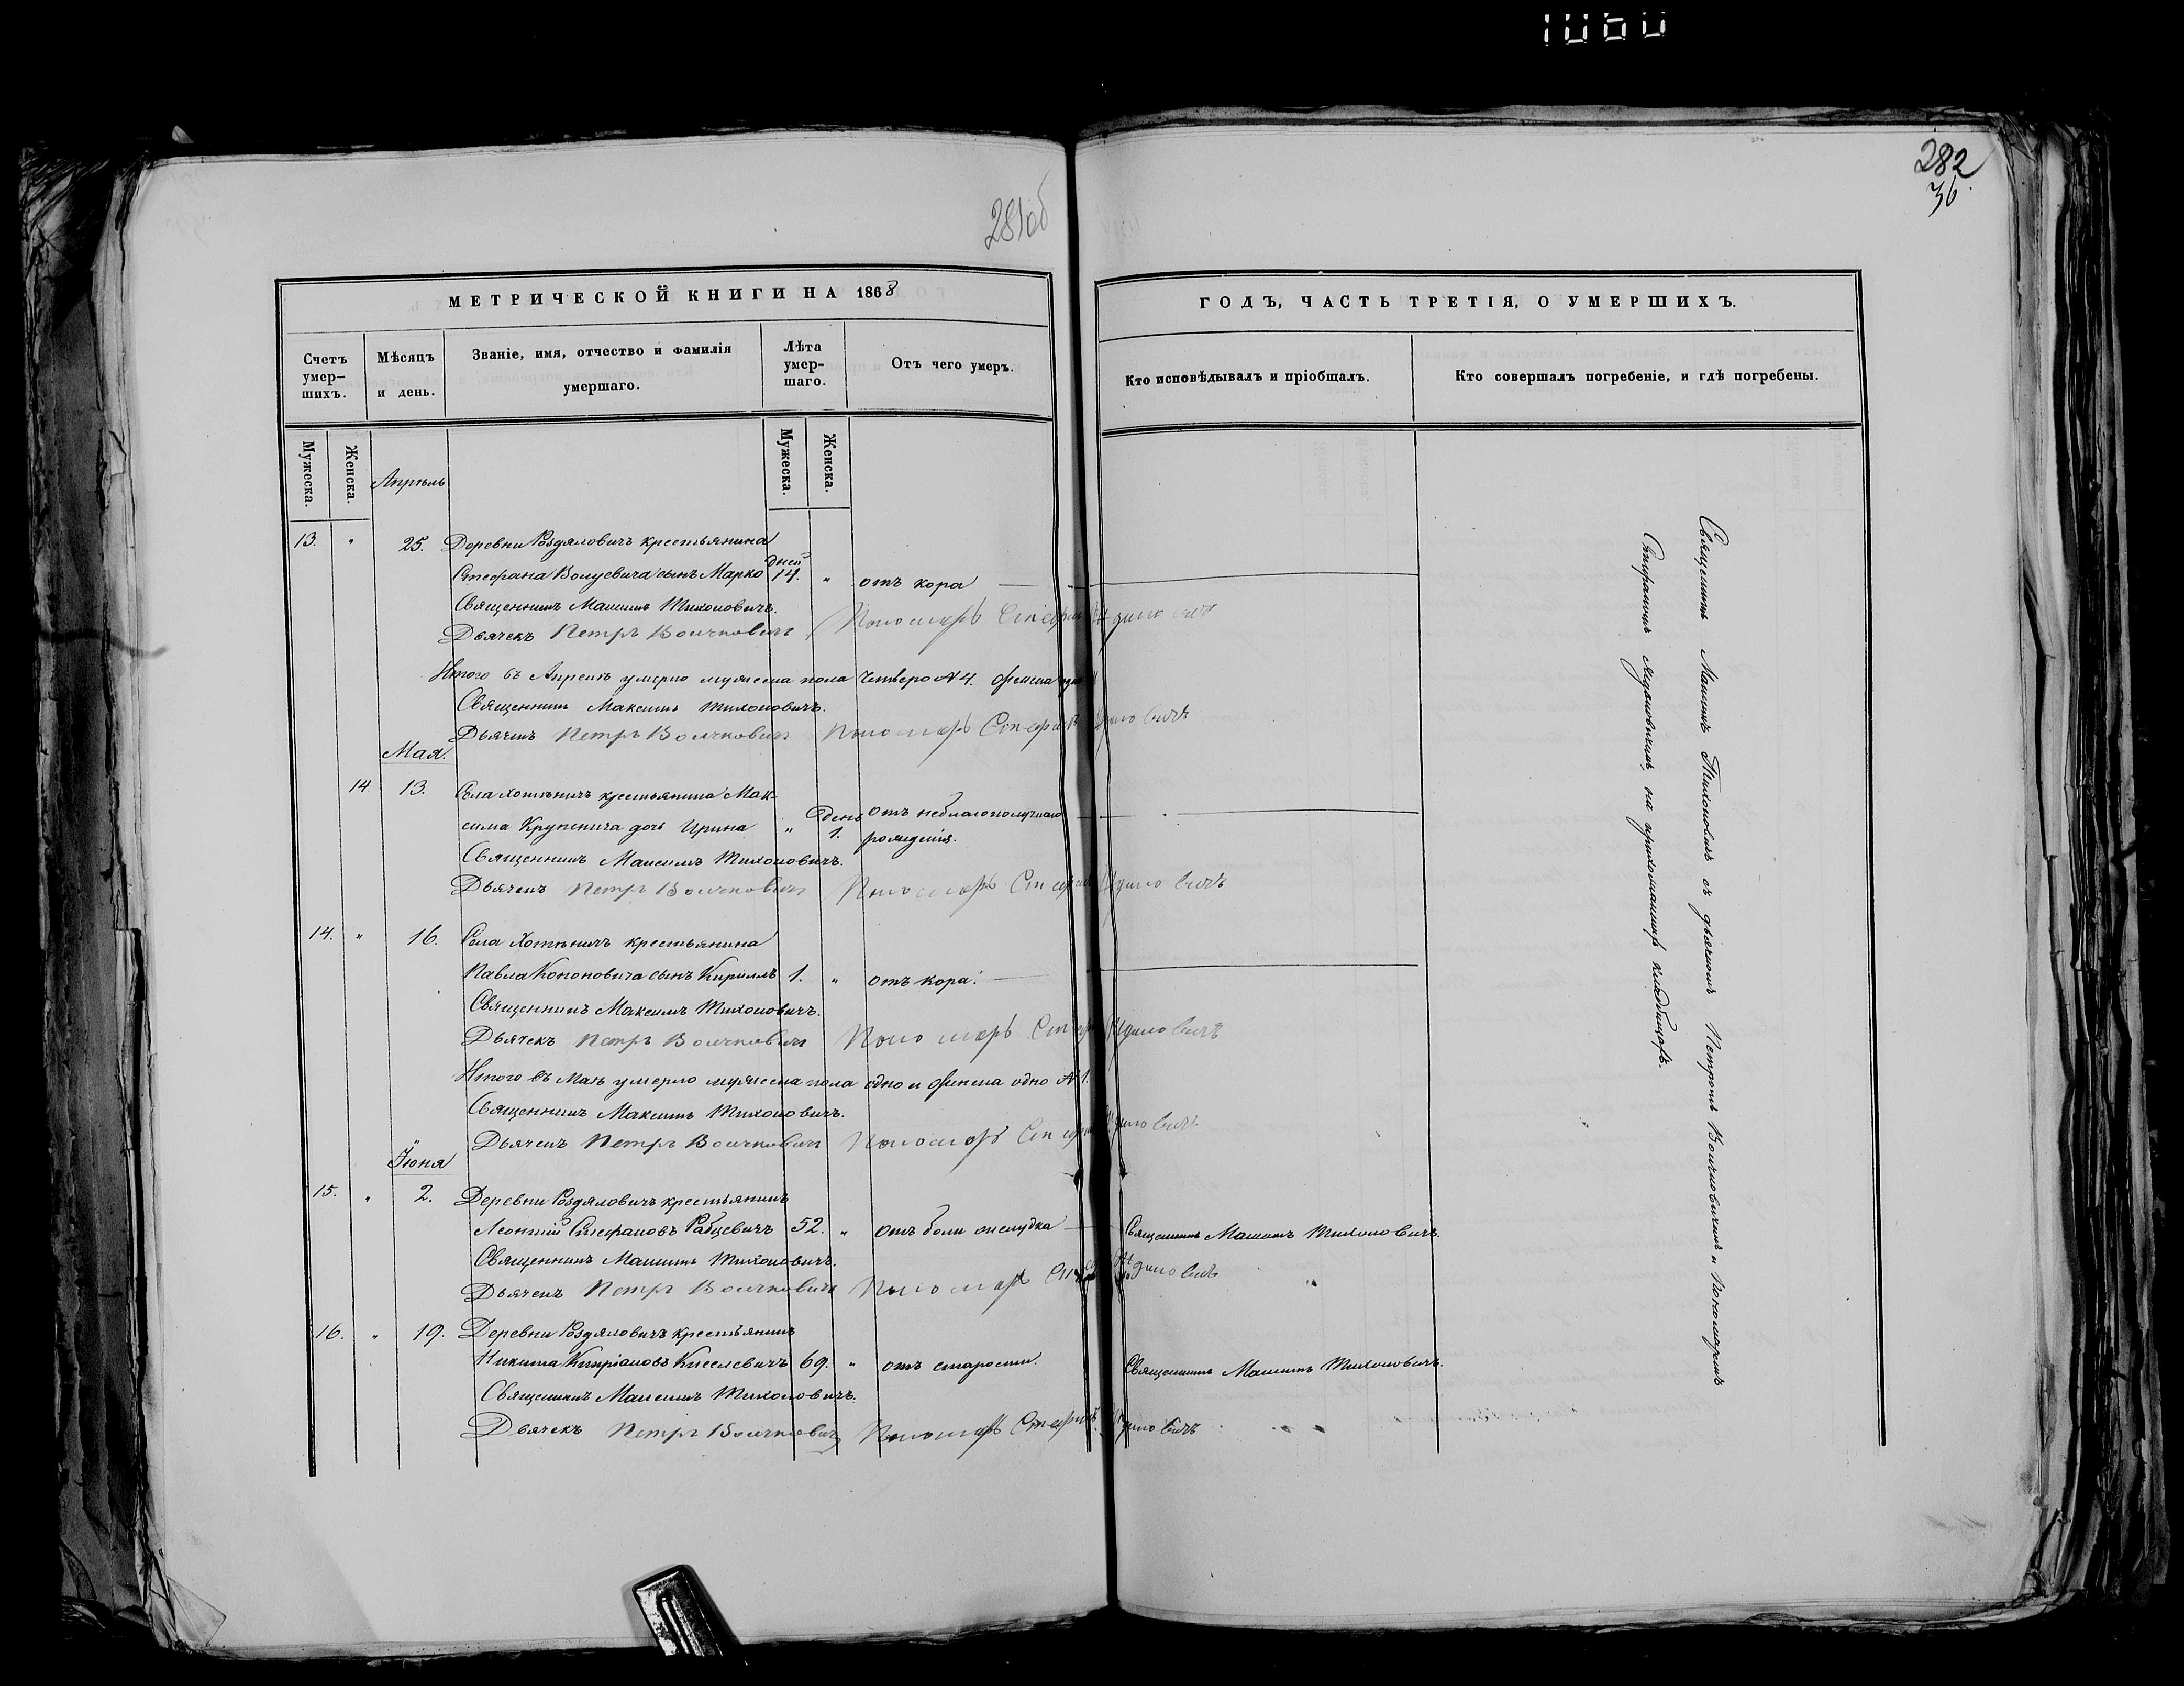 1060
281об
282
36.
МЕТРИЧЕСКОЙ КНИГИ НА 1868
ГОДЪ, ЧАСТЬ ТРЕТІЯ, О УМЕРШИХЪ.
Счетъ умер-
шихъ.
Мѣсяцъ
и день.
Званіе, имя, отчество и фамилія
умершаго.
Лѣта
умер-
шаго.
Отъ чего умеръ.
Кто исповѣдывалъ и пріобщалъ.
Кто совершалъ погребеніе, и гдѣ погребены.
Мужеска.
Женска.
Мужеска.
Женска.
Апрѣль
13. " 25. Деревни Воздяловичъ крестьянина
Стефана сынъ Марко дней 14. " отъ кора
Священникъ Максимъ Тихоновичъ.
Дьячекъ Петръ Волчковичъ Пономарь Стефанъ
Итого въ Апрелѣ умерло мужеска пола четверо № 4.
Священникъ Максимъ Тихоновичъ.
Дьячекъ Петръ Волчковичъ Пономарь Стефанъ
Мая.
14 13. Села Хотѣничъ крестьянина Мак-
сима Крупенича дочь Ирина " день 1. отъ неблагополучнаго
рожденія.
Священникъ Максимъ Тихоновичъ.
Дьячекъ Петръ Волчковичъ Пономарь Стефанъ
14. " 16. Села Хотѣничъ крестьянина
Павла Кононовича сынъ Кириллъ 1. " отъ кора.
Священникъ Максимъ Тихоновичъ.
Дьячекъ Петръ Волчковичъ Пономарь
Итого въ Маѣ умерло мужеска пола одно и женска одно № 1.
Священникъ Максимъ Тихоновичъ.
Дьячекъ Петръ Волчковичъ Пономарь
Іюня
15. " 2. Деревни Воздяловичъ крестьянинъ
Леонтій Стефановъ Рабцевичъ 52. " отъ боли желудка Священникъ Максимъ Тихоновичъ.
Священникъ Максимъ Тихоновичъ.
Дьячекъ Петръ Волчковичъ Пономарь
16. " 19. Деревни Воздяловичъ крестьянинъ
Никита Кипріановъ Киселевичъ 69. " отъ старости. Священникъ Максимъ Тихоновичъ.
Священникъ Максимъ Тихоновичъ.
Дьячекъ Петръ Волчковичъ Пономарь Стефанъ
Священникъ Максимъ Тихоновичъ съ дьячкомъ Петромъ Волчковичемъ и Пономаремъ
на приходскомъ кладбищѣ.